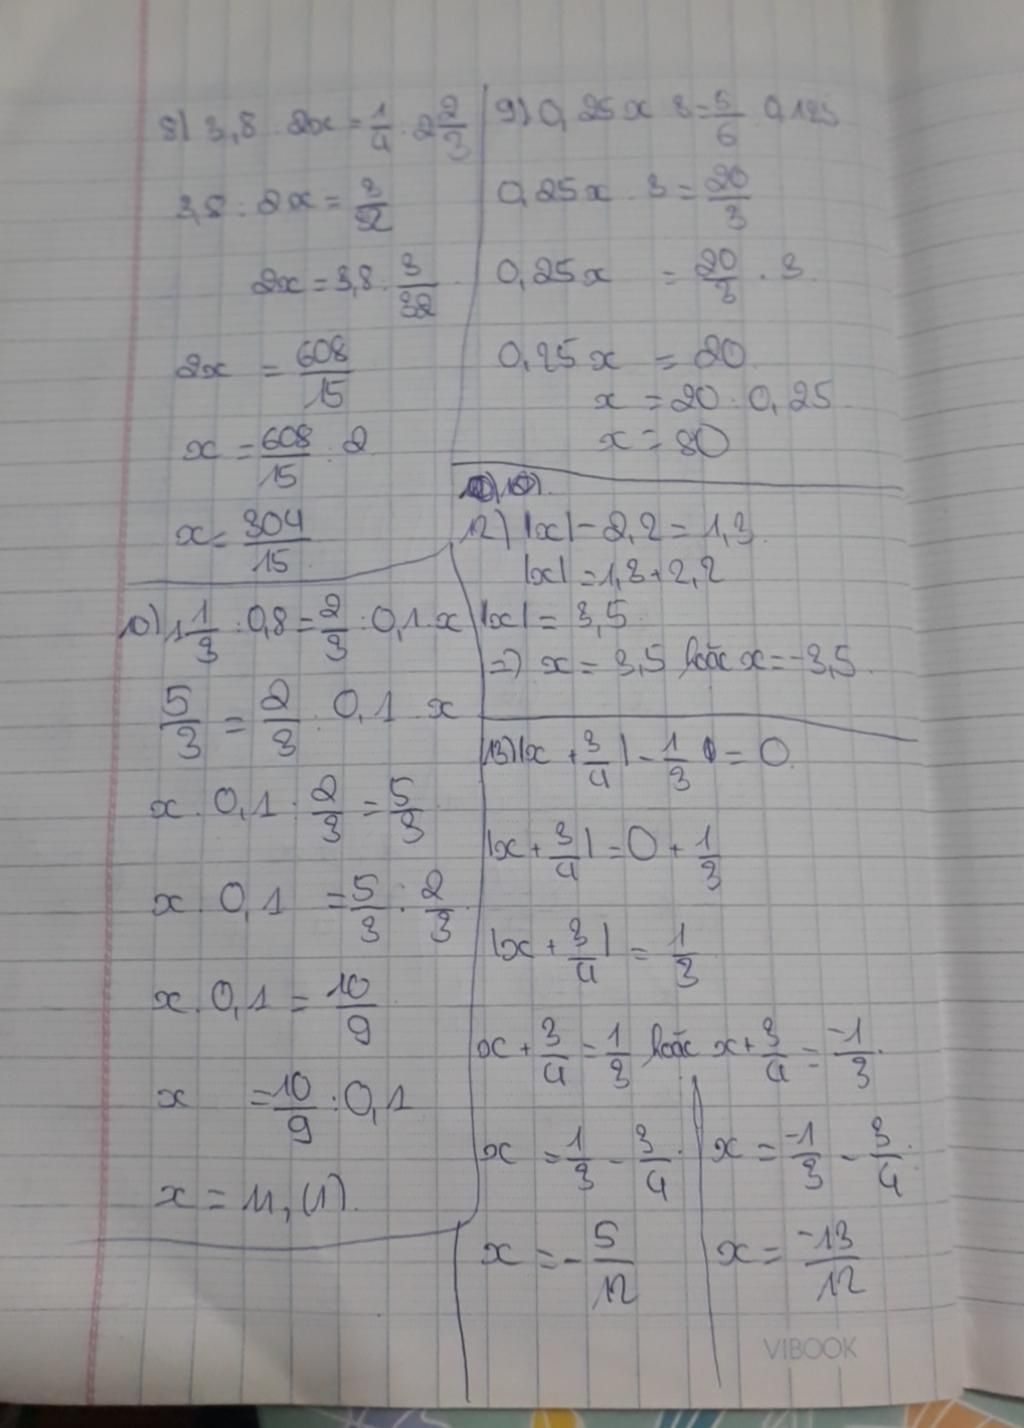 8) 3,8 : 2x = 1/4 : 2 2/3
3,8 : 2x = 3/32
2x = 3,8 : 3/32
2x = 608/15
x = 608/15 : 2
x = 304/15
9) 0,25x : 3 = 5/6 : 0,125
0,25x : 3 = 20/3
0,25x = 20/3 . 3
0,25x = 20
x = 20 : 0,25
x = 80
10) 1 1/3 : 0,8 = 2/3 : 0,1 . x
5/3 = 2/3 : 0,1 . x
x . 0,1 : 2/3 = 5/3
x . 0,1 = 5/3 : 2/3
x . 0,1 = 10/9
x = 10/9 : 0,1
x = 11,(1).
12) |x| - 2,2 = 1,3
|x| = 1,3 + 2,2
|x| = 3,5
=> x = 3,5 hoặc x = -3,5.
13) |x + 3/4| - 1/3 = 0
|x + 3/4| = 0 + 1/3
|x + 3/4| = 1/3
x + 3/4 = 1/3 hoặc x + 3/4 = -1/3
x = 1/3 - 3/4 x = -1/3 - 3/4
x = - 5/12 x = -13/12
VIBOOK